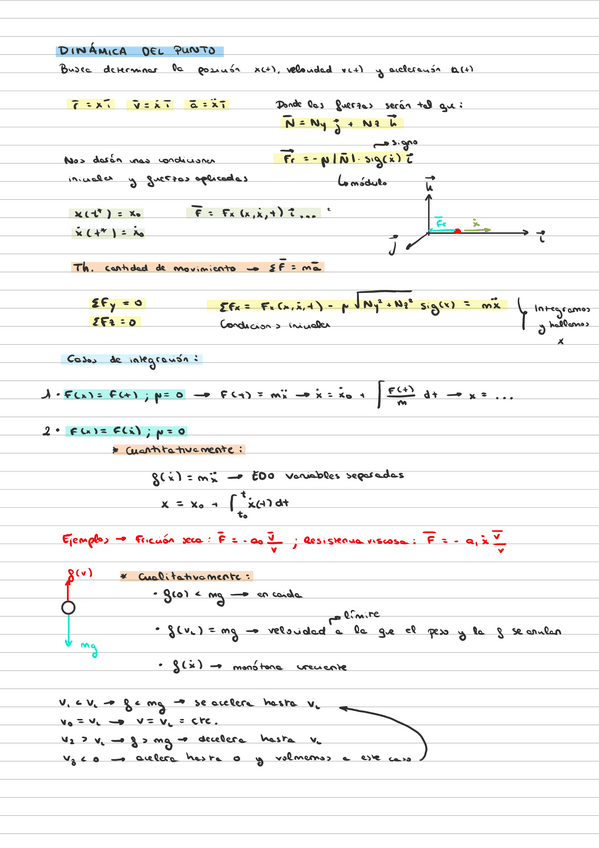 DINÁMICA DEL PUNTO
Busca determinar la posición x(t), velocidad v(t) y aceleración a(t)
r̄ = x ī   v̄ = ẋ ī   ā = ẍ ī   Donde las fuerzas serán tal que:
N⃗ = Ny j⃗ + Nz k⃗
signo
Nos darán unas condiciones   F⃗r = -μ|N⃗|·sig(ẋ) i⃗
iniciales y fuerzas aplicadas   módulo
k⃗
x(t*) = x₀   F̄ = Fx(x,ẋ,t) i⃗ ...
ẋ(t*) = ẋ₀   F̄r   ẋ   i⃗
j⃗
Th. cantidad de movimiento → ΣF̄ = mā
ΣFy = 0   ΣFx = Fx(x,ẋ,t) - μ √(Ny² + Nz²) sig(x) = mẍ   Integramos
ΣFz = 0   Condiciones iniciales   y hallamos
x
Casos de integración:
1· F(x) = F(t) ; μ = 0 → F(t) = mẍ → ẋ = ẋ₀ + ∫ F(t)/m dt → x = ...
2· F(x) = F(ẋ) ; μ = 0
* Cuantitativamente:
f(ẋ) = mẍ → EDO variables separadas
x = x₀ + ∫ₜ₀ᵗ ẋ(t) dt
Ejemplos → Fricción seca: F̄ = -a₀ v̄/v ; Resistencia viscosa: F̄ = - a₁ ẋ v̄/v
f(v)   * Cualitativamente:
· f(0) < mg → en caída
límite
· f(vL) = mg → velocidad a la que el peso y la f se anulan
mg
· f(ẋ) → monótona creciente
v₁ < vL → f < mg → se acelera hasta vL
v₀ = vL → v = vL = cte.
v₂ > vL → f > mg → decelera hasta vL
v₃ < 0 → acelera hasta 0 y volvemos a este caso